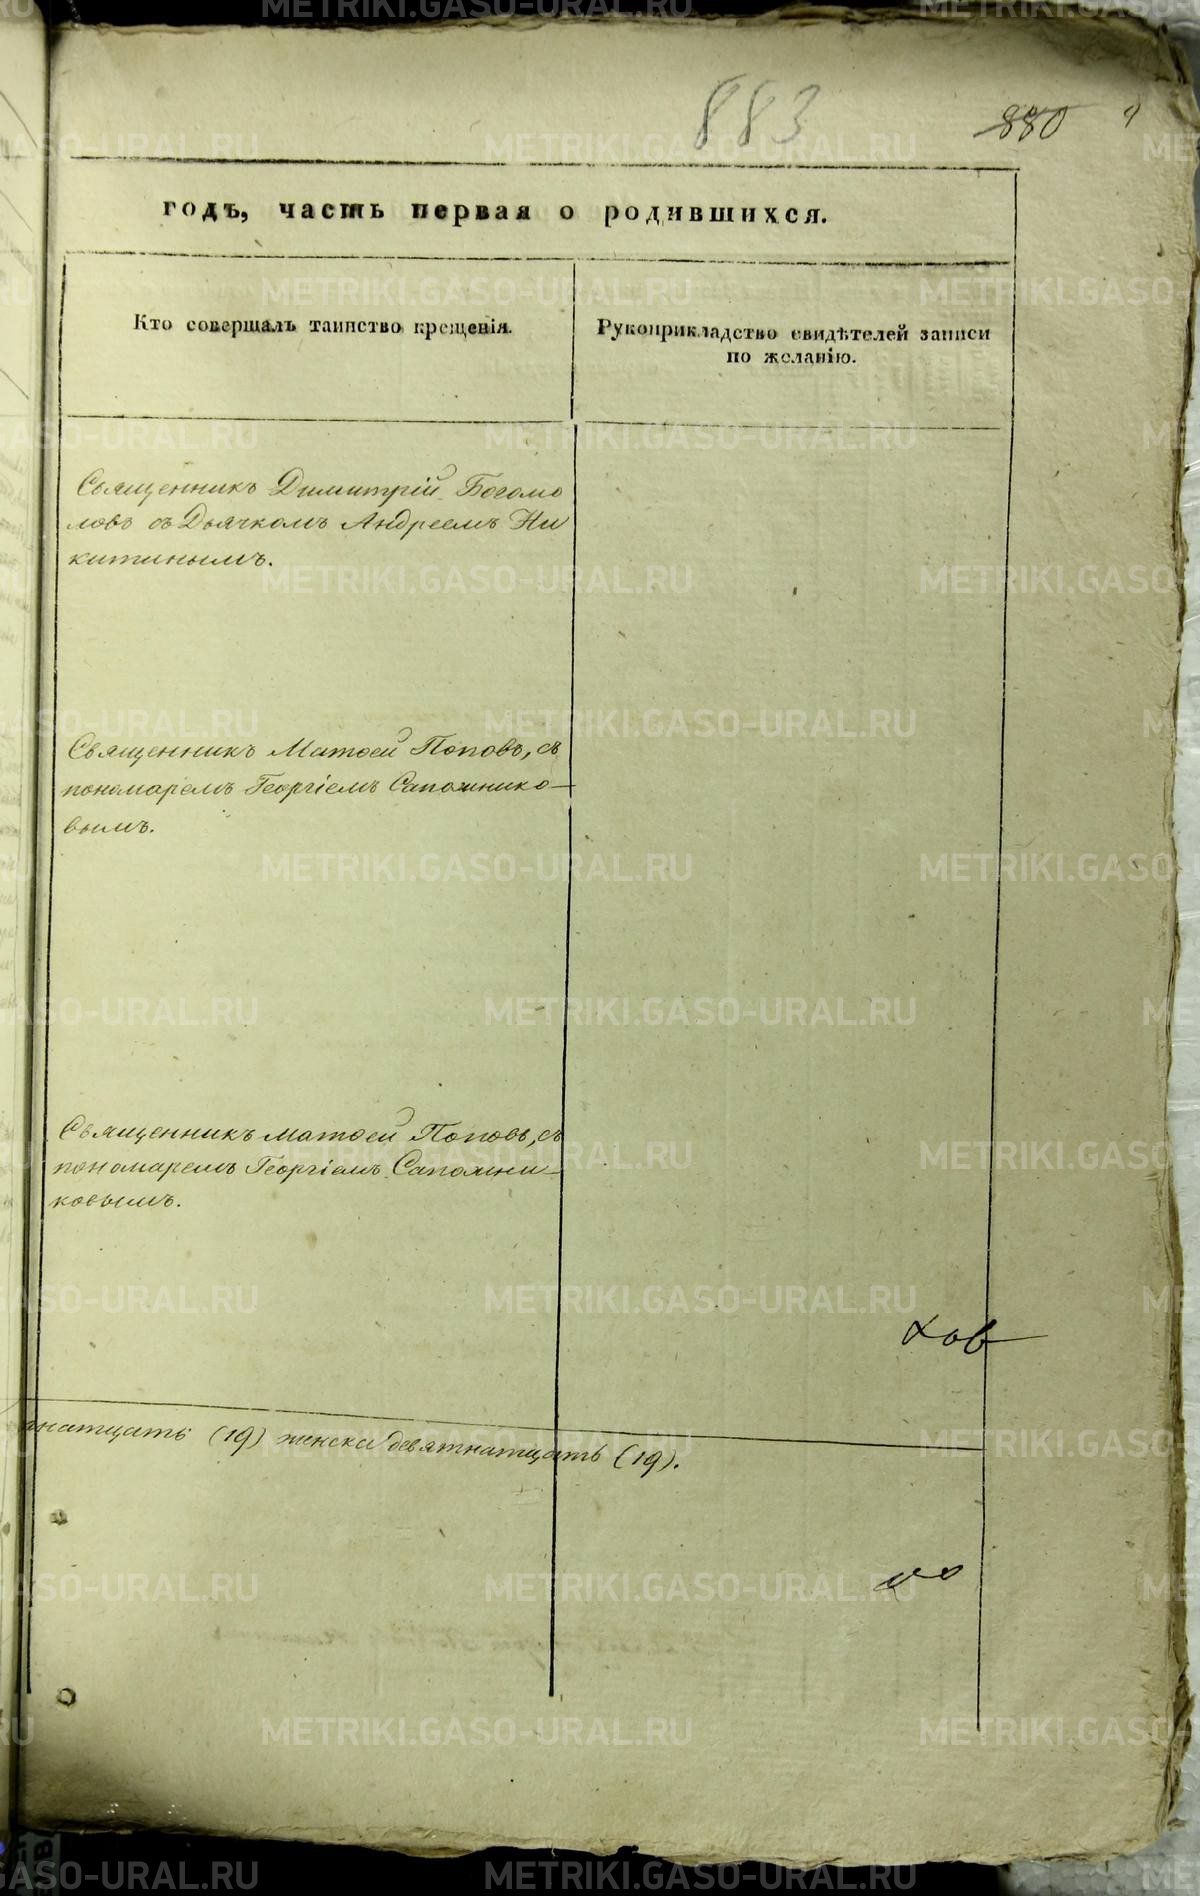 883
880
годъ, часть первая о родившихся.
Кто совершалъ таинство крещенія.
Рукоприкладство свидѣтелей записи
по желанію.
Священникъ Димитрій Богомо
ловъ съ Дьячкомъ Андреемъ Ни
китинымъ.
Священникъ Матѳей Поповъ, съ
пономаремъ Георгіемъ Сапожнико-
вымъ.
Священникъ Матѳей Поповъ, съ
пономаремъ Георгіемъ Сапожни-
ковымъ.
ховъ
натцать (19) женска девятнатцать (19).
METRIKI.GASO-URAL.RU